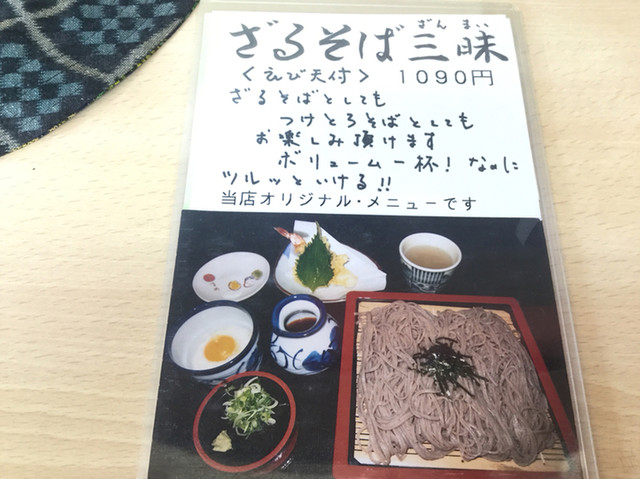 ざん まい
ざるそば三昧
〈えび天付〉 1090円
ざるそばとしても
つけとろそばとしても
お楽しみ頂けます
ボリューム一杯! なのに
ツルッといける!!
当店オリジナル・メニューです